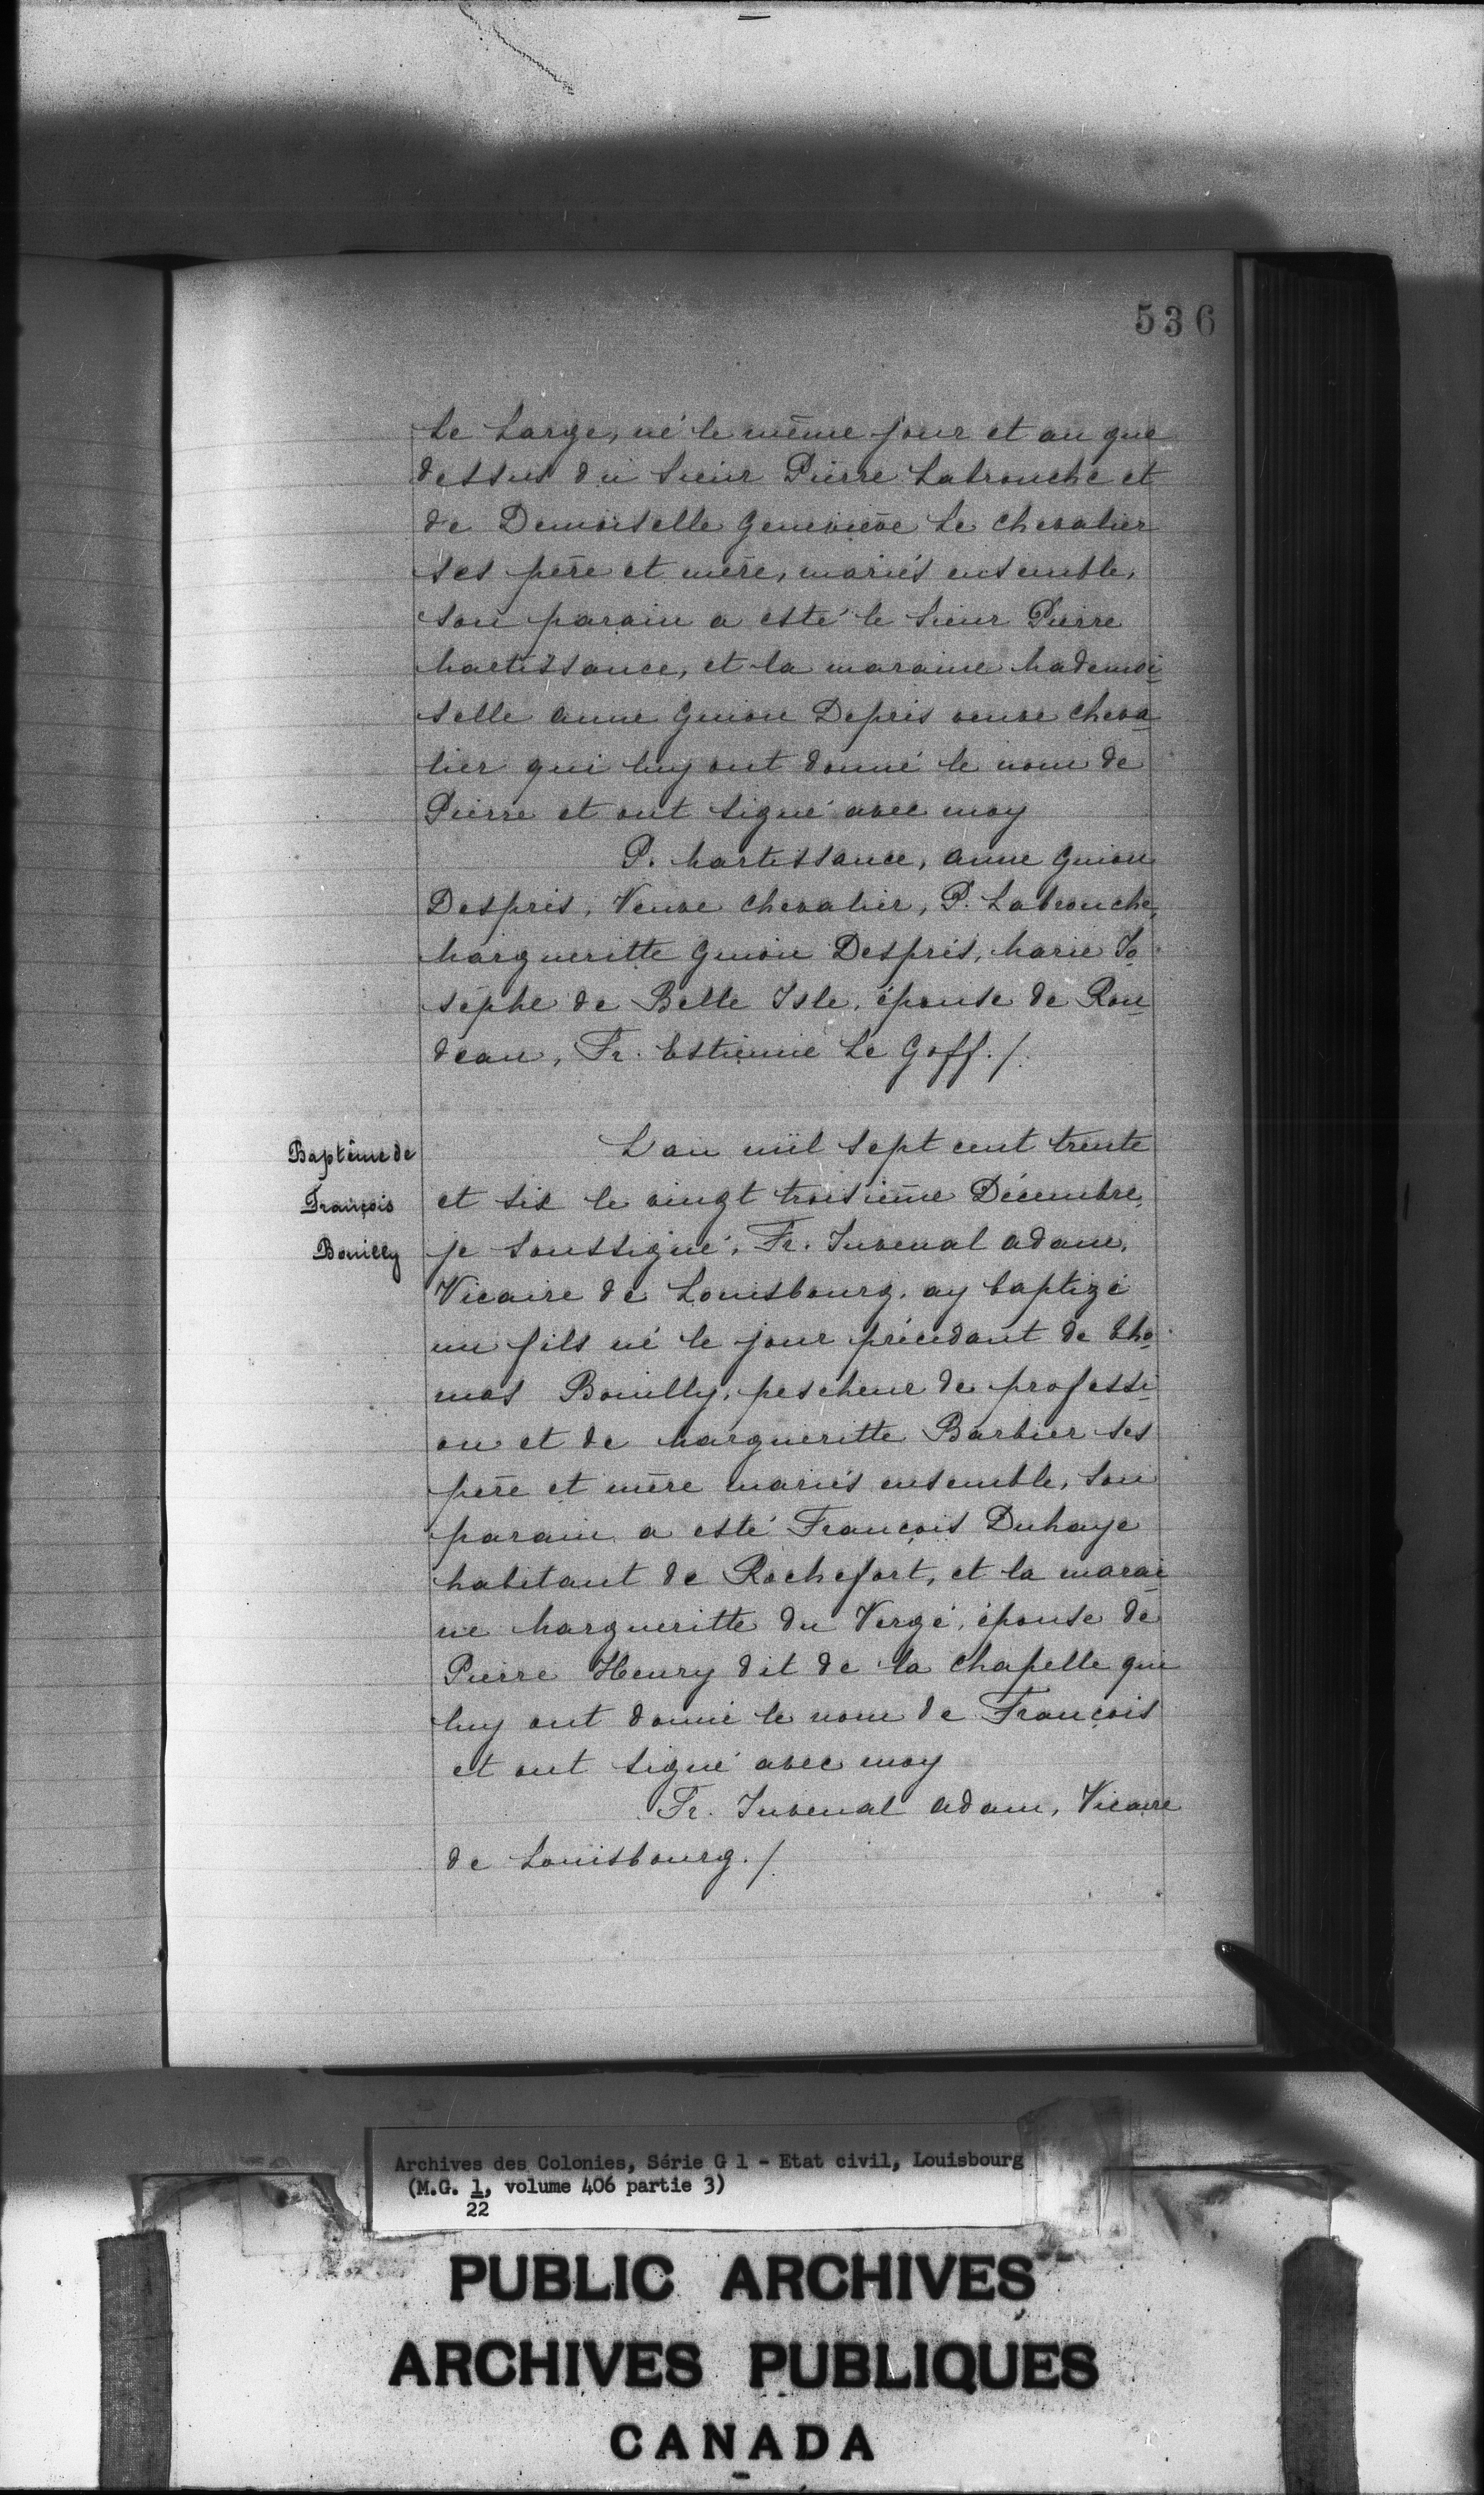 536
Le Large, né le même jour et an que
dessus du Sieur Pierre Labrouche et
de Demoiselle Geneviève Le Chevalier
ses père et mère, mariés ensemble,
son parain a esté le Sieur Pierre
Martissance, et la maraine Mademoi
selle Anne Guion Depris veuve Cheva
lier qui luy ont donné le nom de
Pierre et ont signé avec moy
P. Martissance, Anne Guion
Despris, Veuve Chevalier, P. Labrouche,
Margueritte Guion Despris, Marie Jo
sephe de Belle Isle, épouse de Rou
deau, Fr. Estienne Le Goff./.
Baptême de
François
Bouilly
L'an mil sept cent trente
et six le vingt troisième Décembre,
je soussigné, Fr. Juvenal Adam,
Vicaire de Louisbourg, ay baptizé
un fils né le jour précédant de Tho
mas Bouilly, pescheur de professi
on et de Margueritte Barbier ses
père et mère mariés ensemble, son
parain a esté François Duhaye
habitant de Rochefort, et la marai
ne Margueritte du Vergé, épouse de
Pierre Henry dit de la Chapelle qui
luy ont donné le nom de François
et ont signé avec moy
Fr. Juvenal Adam, Vicaire
de Louisbourg./.
Archives des Colonies, Série G 1 - Etat civil, Louisbourg
(M.G. 1, volume 406 partie 3)
22
PUBLIC ARCHIVES
ARCHIVES PUBLIQUES
CANADA